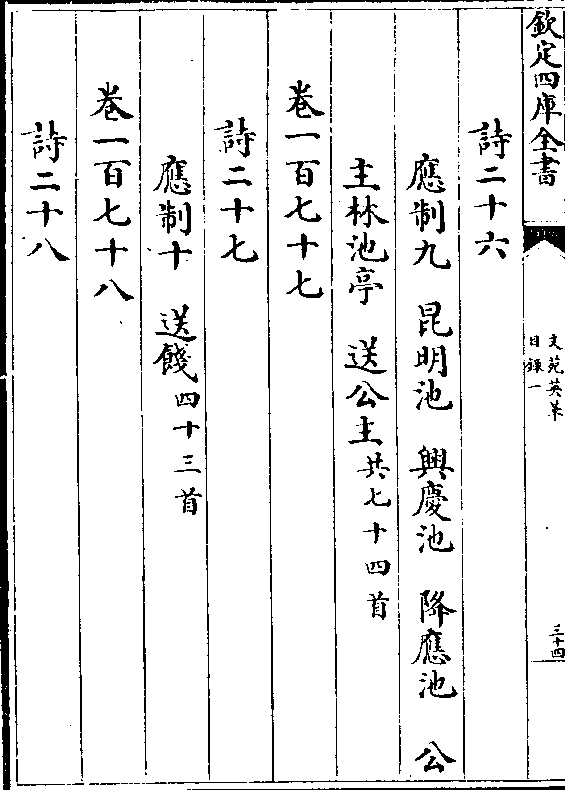 欽定四庫全書
文苑英華
目錄一
三十四
詩二十六
應制九 昆明池 興慶池 降應池 公
主林池亭 送公主共七十四首
卷一百七十七
詩二十七
應制十 送餞四十三首
卷一百七十八
詩二十八